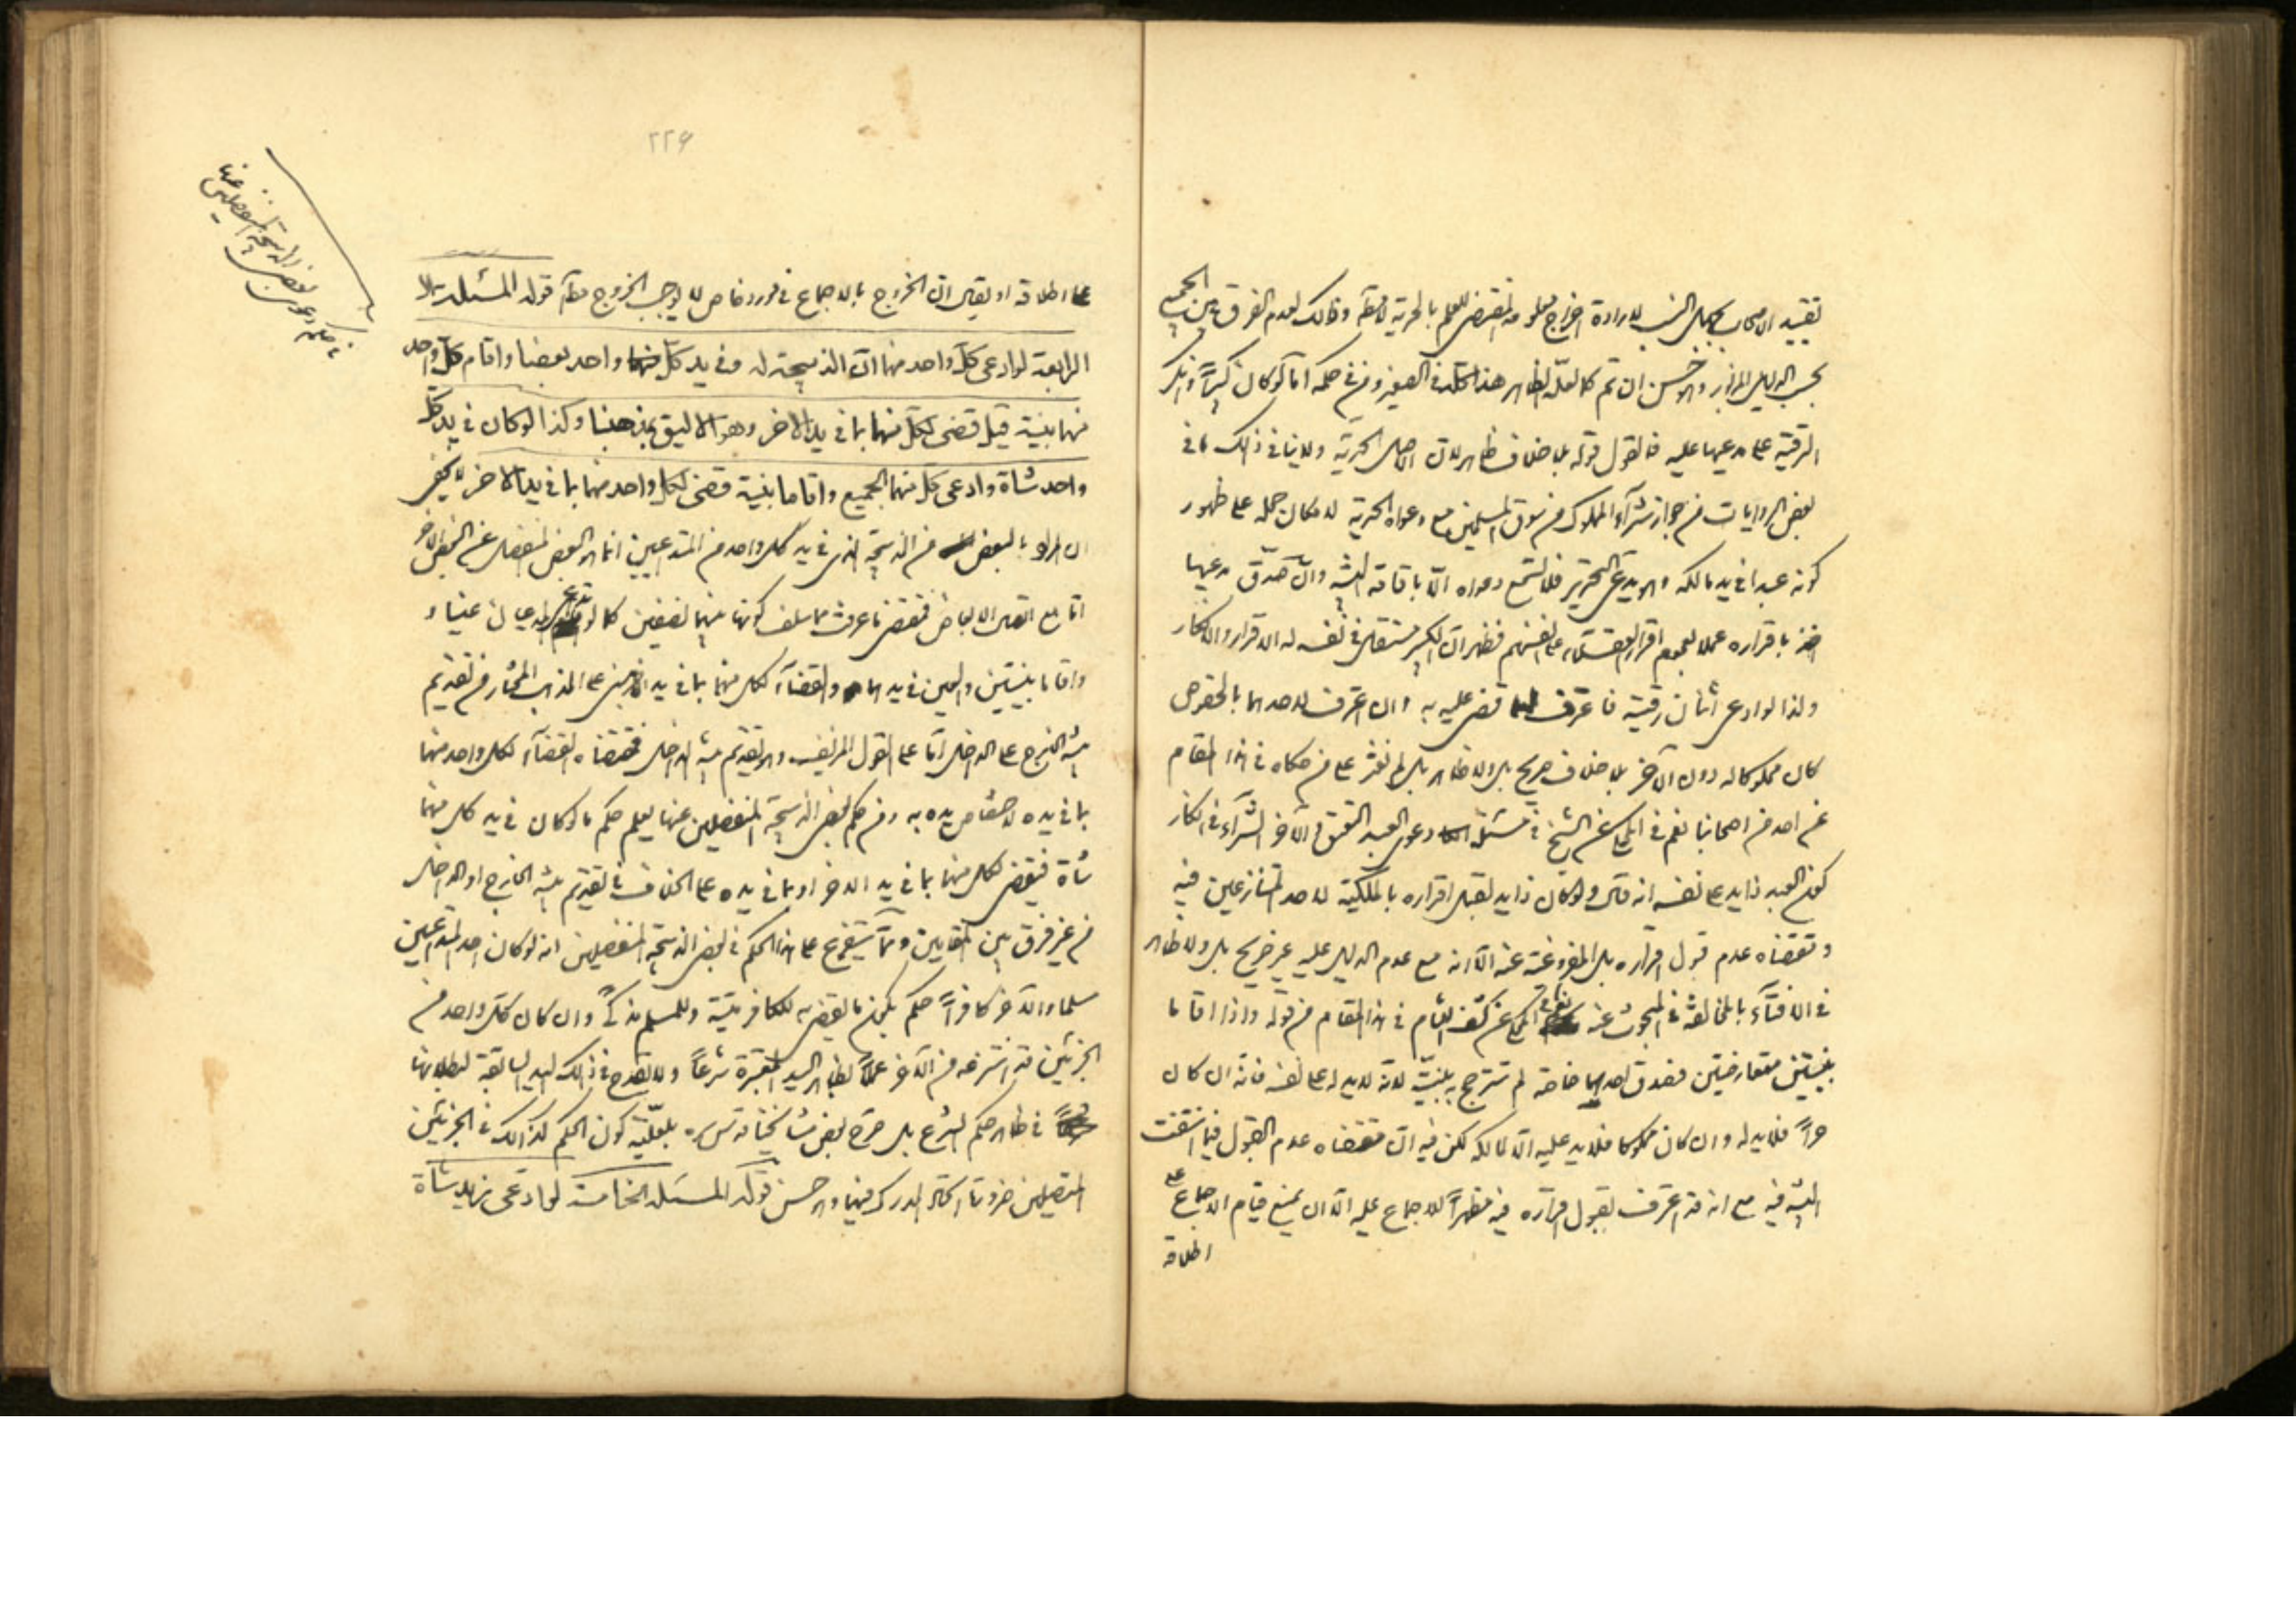 تقييد الاصحاب بمجهول النسب لارادة اخراج معلومه المقتضى للعلم بالحرية مطلقا وذلك لعدم الفرق بين الجميع
بحسب الدليل المزبور والاحسن ان تم كما لعله الظاهر هذا كله في الصغير ومن في حكمه اما لو كان كبيرا وانكر
الرقية على مدعيها عليه فالقول قوله بلا خلاف ظاهر لان الاصل الحرية ولا ينافي ذلك ما في
بعض الروايات من جواز شراء المملوك من سوق المسلمين مع دعواه الحرية لامكان حمله على ظهور
كونه عبدا في يد مالكه وهو يدعى التحرير فلا تسمع دعواه الا باقامة البينة وان صدق مدعيها
اخذ باقراره عملا بعموم اقرار العقلاء على انفسهم فظهر ان الكبير مستقل في نفسه له الاقرار والانكار
ولذا لو ادعى اثنان رقيته فاعترف لهما قضى عليه به وان اعترف لاحدهما بالخصوص
كان مملوكا له دون الآخر بلا خلاف صريح بل ولا ظاهر بل لم نعثر على من حكاه في هذا المقام
عن احد من اصحابنا نعم في المحكى عن الشيخ في مسئلة دعوى العبد العتق والآخر الشراء في انكار
كون العبد ذا يد على نفسه انه قال ولو كان ذا يد لقبل اقراره بالملكية لاحد المتنازعين فيه
ومقتضاه عدم قبول اقراره بل المفروغية عنه الا انه مع عدم الدليل عليه غير صريح بل ولا ظاهر
في الافتاء بالمخالفة في المبحوث عنه نعم في المحكى عن كشف اللثام في هذا المقام من قوله واذا اقاما
بينتين متعارضتين فصدق احدهما خاصة لم تترجح به بينته لانه لا يد له على نفسه فانه ان كان
حرا فلا يد له وان كان مملوكا فلا يد عليه الا لمالكه لكن فيه ان مقتضاه عدم القبول فيما انتفت
البينة فيه مع انه قد اعترف بقبول اقراره فيه مظهرا للاجماع عليه الا ان يمنع قيام الاجماع على
اطلاقه
٢٢۶
على اطلاقه او يقال ان الخروج بالاجماع في مورد خاص لا يوجب الخروج مطلقا قوله المسئلة
الرابعة لو ادعى كل واحد منهما ان الذبيحة له وفي يد كل واحد بعضها واقام كل واحد
منهما بينة قيل قضى لكل منهما بما في يد الاخر وهو الاليق بمذهبنا وكذا لو كان في يد كل
واحد شاة وادعى كل منهما الجميع واقاما بينة قضى لكل واحد منهما بما في يد الاخر لا يخفى
ان المراد بالبعض من الذبيحة الذي في يد كل واحد من المتداعيين انما هو البعض المنفصل عن البعض الاخر
اما مع اتصال الابعاض فمقتضى ما عرفت مما سلف كونها بينهما نصفين كما لو تداعى المدعيان عينا و
واقاما بينتين والعين في يدهما والقضاء لكل منهما بما في يد الآخر مبنى على المذهب المختار من تقديم
بينة الخارج على الداخل اما على القول المزيف وهو تقديم بينة الداخل فمقتضاه القضاء لكل واحد منهما
بما في يده لاختصاص يده به ومن حكم بعض الذبيحة المنفصلين عنها يعلم حكم ما لو كان في يد كل منهما
شاة فيقضى لكل منهما بما في يد الاخر او بما في يده على الخلاف في تقديم بينة الخارج او الداخل
من غير فرق بين المقامين ومما يتفرع على هذا الحكم في بعض الذبيحة المنفصلين انه لو كان احد المتداعيين
مسلما والآخر كافرا حكم بكون ما يقضى به للكافر ميتة وللمسلم مذكى وان كان كل واحد من
الجزئين قد انتزعه من الآخر عملا بظاهر اليد المعتبرة شرعا ولا يقدح في ذلك اليد السابقة لبطلانها
في ظاهر حكم الشرع بل صرح بعض مشائخنا بلعلية كون الحكم كذلك في الجزئين
المتصلين ضرورة اتحاد المدرك فيهما وهو حسن قوله المسئلة الخامسة لو ادعى زيد شاة